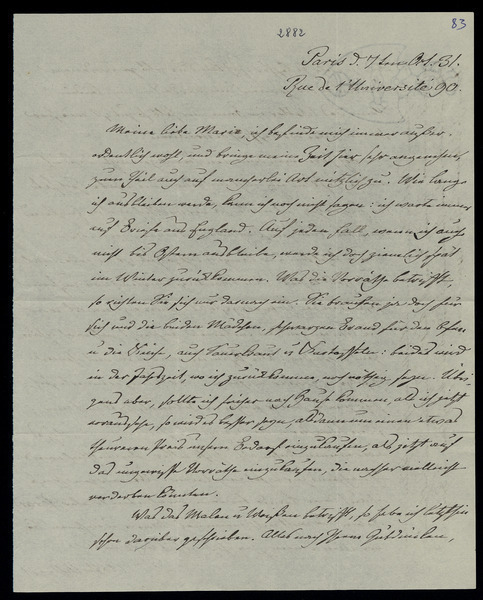 83
2882
Paris d. 7ten Oct. 31.
Rue de l'Université 90.
Meine liebe Marie, ich befinde mich immer außer-
ordentlich wohl, und bringe meine Zeit hier sehr angenehm,
zum Theil auch auf mancherlei Art nützlich zu. Wie lange
ich ausbleiben werde, kann ich noch nicht sagen: ich warte immer
auf Briefe aus England. Auf jeden Fall, wenn ich auch
nicht bis Ostern ausbleibe, werde ich doch ziemlich spät
im Winter zurückkommen. Was die Vorräthe betrifft,
so richten Sie sich nur darnach ein. Sie brauchen ja doch für
sich und die beiden Mädchen, schwarzen Brand für den Ofen
u die Küche, auch Sauerkraut u Kartoffeln: beides wird
in der Fastzeit, wo ich zurückkomme, noch nöthig seyn. Übri-
gens aber, sollte ich früher nach Hause kommen, als ich jetzt
voraussehe, so wird es besser seyn, alsdann um einen etwas
theureren Preis unsern Bedarf einzukaufen, als jetzt auf
das ungewisse Vorräthe einzukaufen, die nachher vielleicht
verderben könnten.
Was das Malen u Weißen betrifft, so habe ich letzthin
schon darüber geschrieben. Alles nach Ihrem Gutdünken,